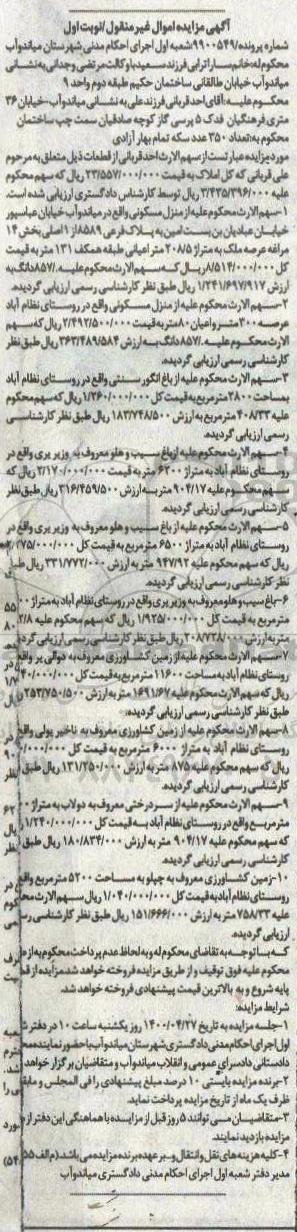 آگهی مزایده اموال غیر منقول /نوبت اول
شماره پرونده/۹۹۰۰۵۴۹شعبه اول اجرای احکام مدنی شهرستان میاندوآب
محکوم له:خانم سارا ترابی فرزند سعید با وکالت مرتضی وجدانی به نشانی
میاندوآب خیابان طالقانی ساختمان حکیم طبقه دوم واحد ۹
محکوم علیه:آقای احد قربانی فرزند علی به نشانی میاندوآب-خیابان ۳۶
متری فرهنگیان فدک ۵ پرسی گاز کوچه صادقیان سمت چپ ساختمان
محکوم به:تعداد ۳۵۰ عدد سکه تمام بهار آزادی
مورد مزایده عبارتست از سهم الارث احد قربانی از قطعات ذیل متعلق به مرحوم
علی قربانی که کل املاک به قیمت ۲۳/۵۵۷/۰۰۰/۰۰۰ ریال که سهم محکوم
علیه ۳/۴۳۵/۳۹۶/۰۰۰ ریال توسط کارشناس دادگستری ارزیابی شده است.
۱-سهم الارث محکوم علیه از منزل مسکونی واقع در میاندوآب خیابان عباسپور
خیابان عبادیان بن بست امین به پلاک فرعی ۸۵۸۹از ۱ اصلی بخش ۱۴
مراغه عرصه ملک به متراژ ۲۰۸/۵ متر اعیانی طبقه همکف ۱۳۱ متر به قیمت
کل ۸/۵۱۴/۰۰۰/۰۰۰ریال که سهم الارث محکوم علیه ۸۵۷/.دانگ به
ارزش ۱/۲۴۱/۶۹۷/۹۱۷ ریال طبق نظر کارشناسی رسمی ارزیابی گردیده.
۲-سهم الارث محکوم علیه از منزل مسکونی واقع در روستای نظام آباد
عرصه ۳۰۰ متر و اعیان ۸۰متر به قیمت ۲/۴۹۲/۵۰۰/۰۰۰ ریال که سهم
الارث محکوم علیه ۸۵۷/.دانگ به ارزش ۳۶۳/۴۸۹/۵۸۴ ریال طبق نظر
کارشناسی رسمی ارزیابی گردیده.
۳-سهم الارث محکوم علیه از باغ انگور سنتی واقع در روستای نظام آباد
بمساحت ۲۸۰۰ متر مربع به قیمت کل ۱/۲۶۰/۰۰۰/۰۰۰ ریال که سهم محکوم
علیه ۴۰۸/۳۳ متر مربع به ارزش ۱۸۳/۷۴۸/۵۰۰ ریال طبق نظر کارشناسی
رسمی ارزیابی گردیده.
۴-سهم الارث محکوم علیه از باغ سیب و هلو معروف به وزیر یری واقع در
روستای نظام آباد به متراژ ۶۲۰۰ متر به قیمت ۲/۱۷۰/۰۰۰/۰۰۰ ریال که
سهم محکوم علیه ۹۰۴/۱۷ متر به ارزش ۳۱۶/۴۵۹/۵۰۰ ریال طبق نظر
کارشناسی رسمی ارزیابی گردیده.
۵-سهم الارث محکوم علیه از باغ سیب و هلو معروف به وزیر یری واقع در
روستای نظام آباد به متراژ ۶۵۰۰ متر مربع به قیمت کل ۷۵/۰۰۰/۰۰۰
ریال که سهم محکوم علیه ۹۴۷/۹۲ متر به ارزش ۳۳۱/۷۷۲/۰۰۰ ریال طبق
نظر کارشناسی رسمی ارزیابی گردیده.
۶-باغ سیب و هلو معروف به وزیر یری واقع در روستای نظام آباد به متراژ
متر مربع به قیمت کل ۱/۹۲۵/۰۰۰/۰۰۰ ریال که سهم محکوم علیه
متر به ارزش ۲۰۸/۷۲۸/۰۰۰ ریال طبق نظر کارشناسی رسمی ارزیابی
۷-سهم الارث محکوم علیه از زمین کشاورزی معروف به دوالی یر واقع
روستای نظام آباد به مساحت ۱۱۶۰۰ متر مربع به قیمت کل
ریال که سهم الارث محکوم علیه ۱۶۹۱/۶۷ متر به ارزش ۲۵۳/۷۵۰/۵۰۰
طبق نظر کارشناسی رسمی ارزیابی گردیده.
۸-سهم الارث محکوم علیه از زمین کشاورزی معروف به ناخیر یولی واقع
روستای نظام آباد به متراژ ۶۰۰۰ متر مربع به قیمت کل
ریال که سهم محکوم علیه ۸۷۵ متر به ارزش ۱۳۱/۲۵۰/۰۰۰ ریال طبق
کارشناسی رسمی ارزیابی گردیده.
۹-سهم الارث محکوم علیه از سردرختی معروف به دولاب به متراژ
متر مربع واقع در روستای نظام آباد به قیمت کل ۱/۲۴۰/۰۰۰/۰۰۰
که سهم محکوم علیه ۹۰۴/۱۷ متر به ارزش ۱۸۰/۸۳۴/۰۰۰ ریال طبق
کارشناسی رسمی ارزیابی گردیده.
۱۰-زمین کشاورزی معروف به چپلو به مساحت ۵۲۰۰ متر مربع واقع
روستای نظام آباد به قیمت کل ۱/۰۴۰/۰۰۰/۰۰۰ ریال سهم الارث
علیه ۷۵۸/۳۳ متر به ارزش ۱۵۱/۶۶۶/۰۰۰ ریال طبق نظر کارشناسی
ارزیابی گردیده.
که با توجه به تقاضای محکوم له و به لحاظ عدم پرداخت محکوم به از
محکوم علیه فوق توقیف و از طریق مزایده فروخته خواهد شد.مزایده از
پایه شروع و به بالاترین قیمت پیشنهادی فروخته خواهد شد.
شرایط مزایده:
۱-جلسه مزایده به تاریخ ۱۴۰۰/۰۴/۲۷ روز یکشنبه ساعت ۱۰ در دفتر
اول اجرای احکام مدنی دادگستری شهرستان میاندوآب با حضور نماینده
دادستانی دادسرای عمومی و انقلاب میاندوآب و متقاضیان برگزار خواهد
۲-برنده مزایده بایستی ۱۰ درصد مبلغ پیشنهادی را فی المجلس و
ظرف یک ماه از تاریخ مزایده پرداخت نماید.
۳-متقاضیان می توانند ۵ روز قبل از مزایده با هماهنگی این دفتر از
مزایده بازدید نمایند.
۴-کلیه هزینه های نقل و انتقال و... بر عهده برنده مزایده می باشد.(م الف
مدیر دفتر شعبه اول اجرای احکام مدنی دادگستری میاندوآب